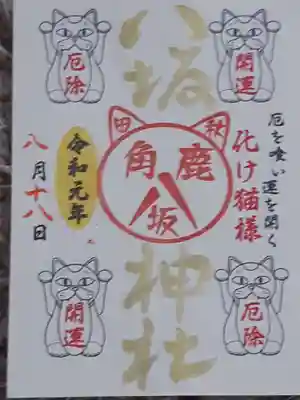 厄を喰い運を開く
化け猫様
開運
厄除
八坂神社
秋田
鹿角
八坂
令和元年
八月十八日
厄除
開運